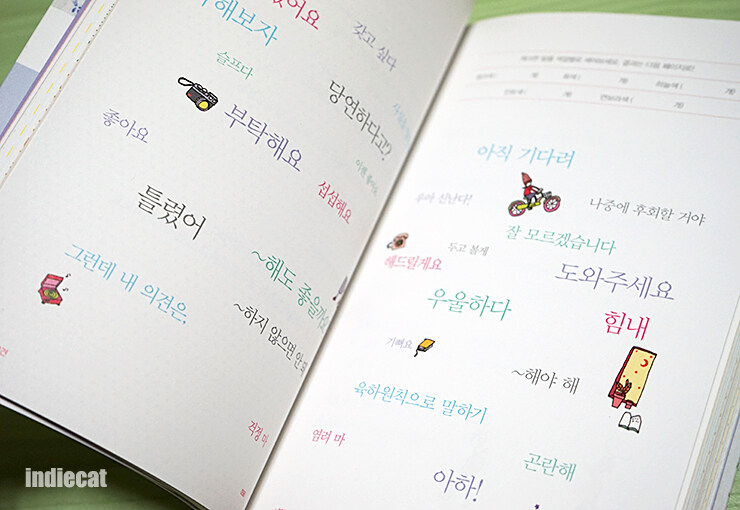 해보자
갖고 싶다
슬프다
당연하다고?
부탁해요
좋아요
섭섭해요
틀렸어
~해도 좋을
그런데 내 의견은,
~하지 않으면 안
걱정 마
indiecat
아직 기다려
신난다!
나중에 후회할 거야
잘 모르겠습니다
두고 봅게
해드릴게요
도와주세요
우울하다
힘내
기뻐요
~해야 해
육하원칙으로 말하기
염려 마
곤란해
아하!